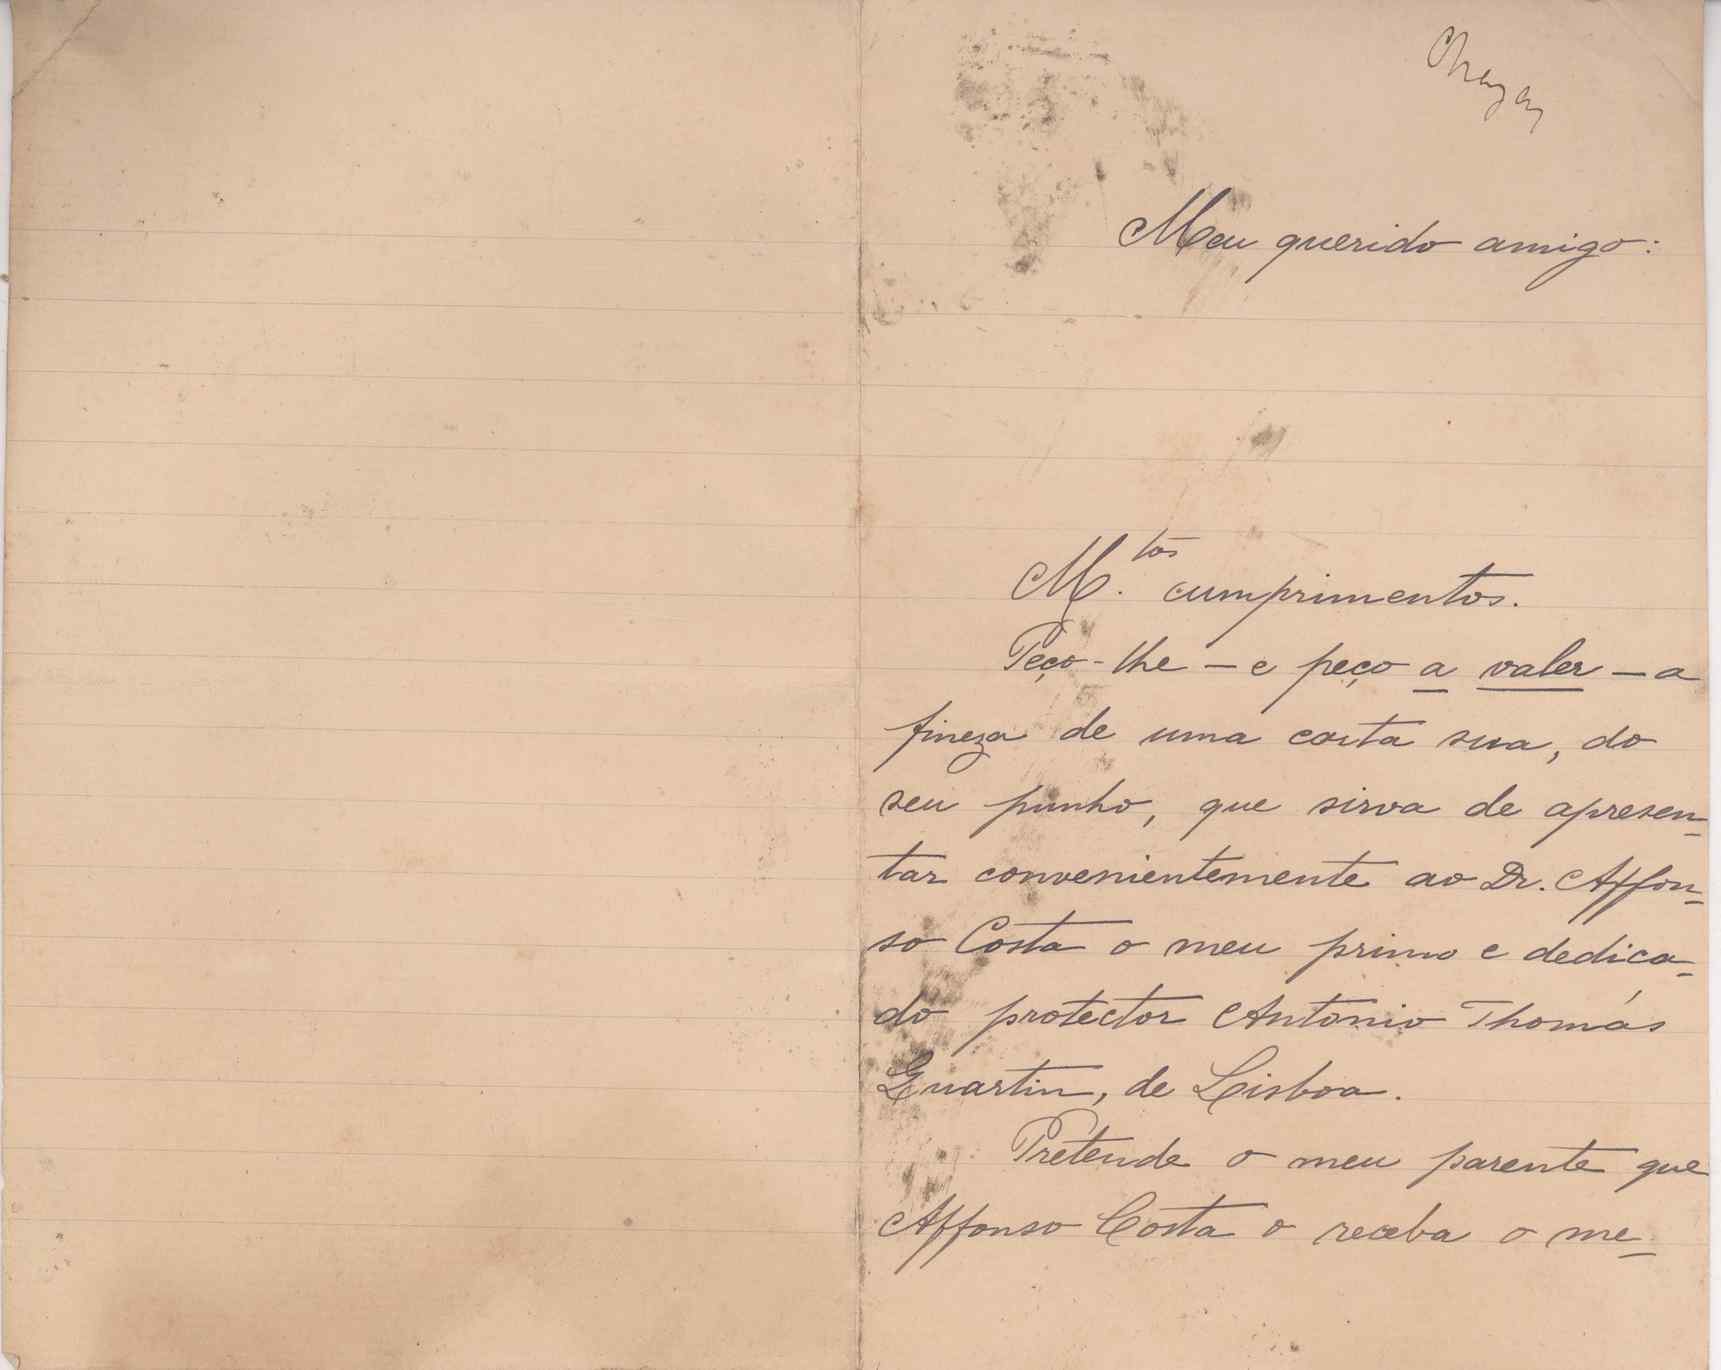 Meu querido amigo:
M.tos cumprimentos.
Peço-lhe — e peço a valer — a
fineza de uma carta sua, do
seu punho, que sirva de apresen-
tar convenientemente ao Dr. Affon-
so Costa o meu primo e dedica-
do protector Antonio Thomás
Quartin, de Lisboa.
Pretende o meu parente que
Affonso Costa o receba o me-